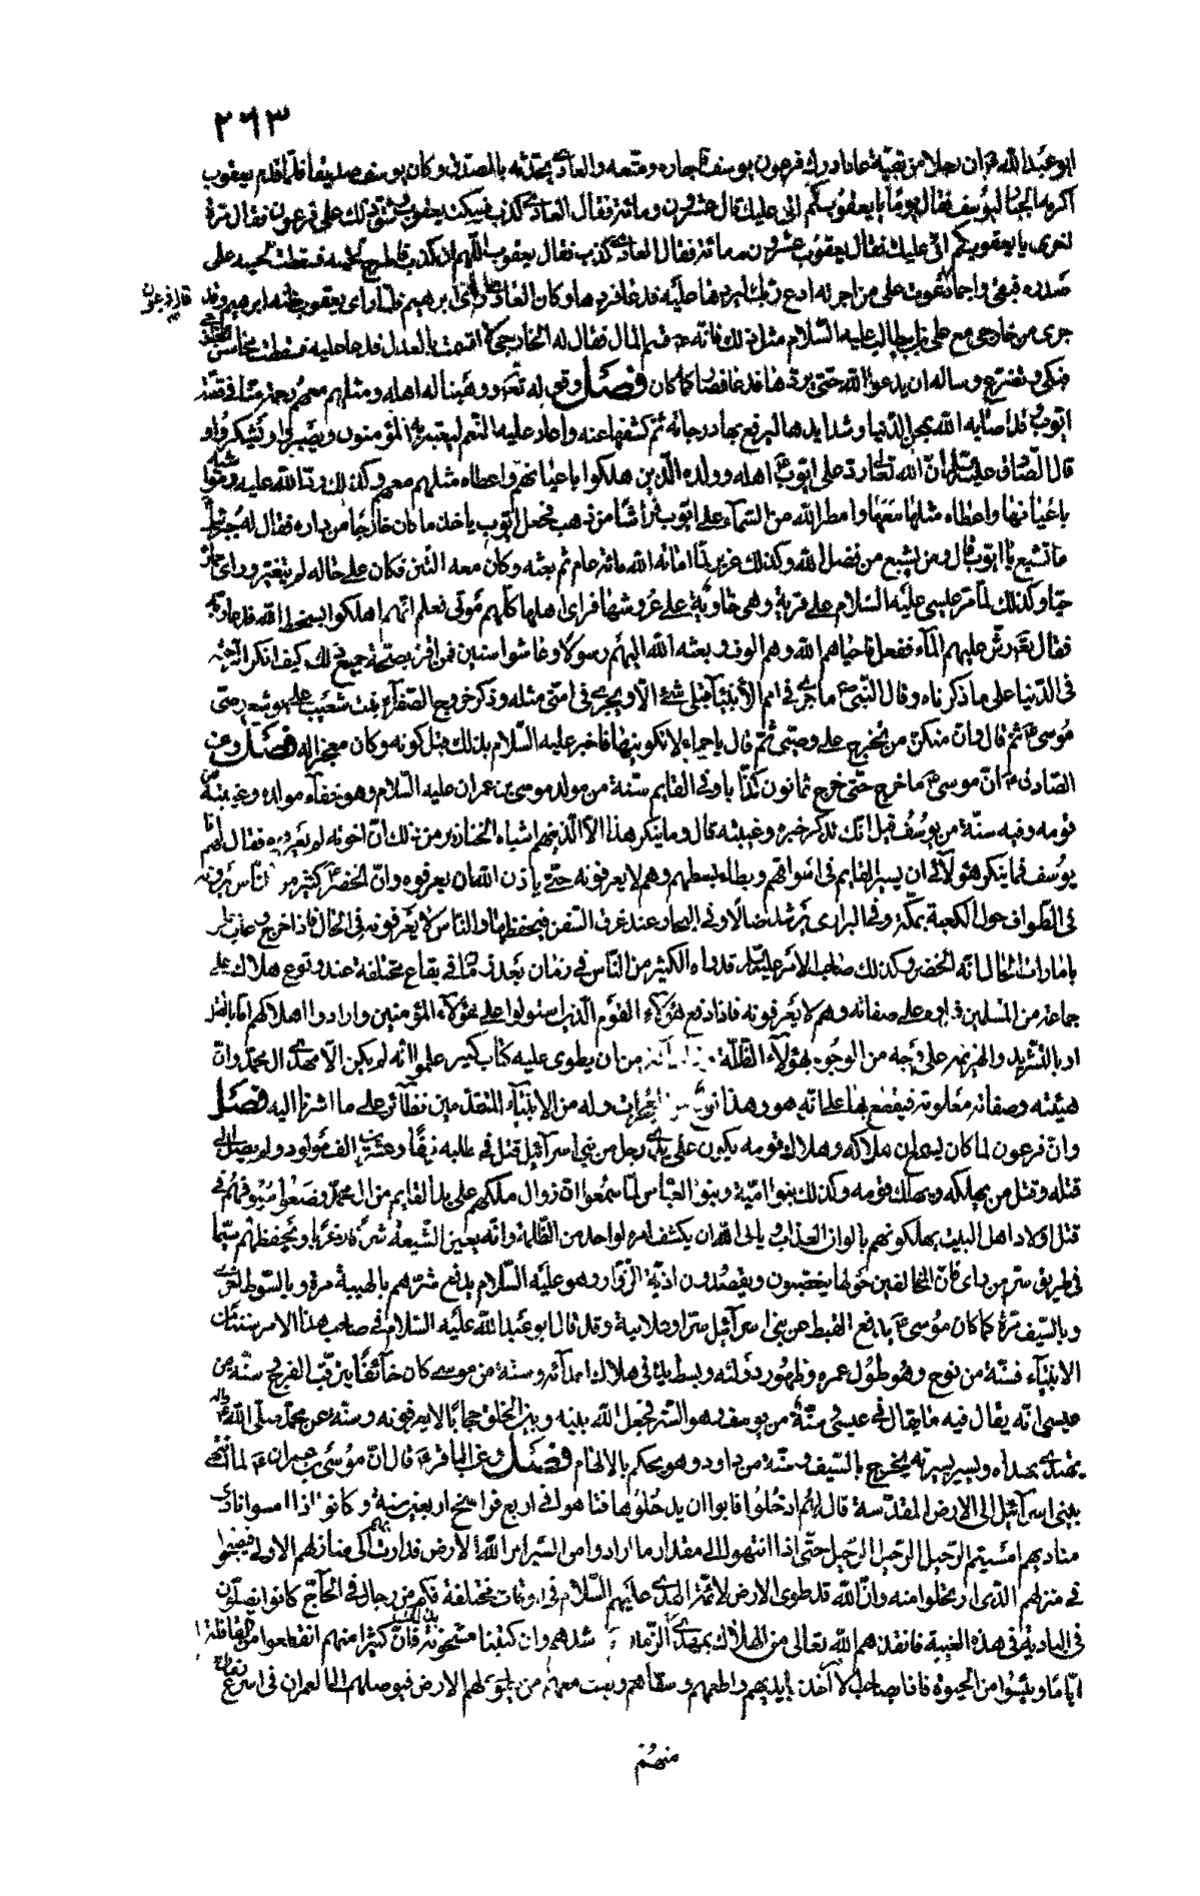 ٢٦٣
ابو عبد الله ان رجلا من بقية عاد ادرك فرعون يوسف اجاره ومنعه والعادي يحدثه بالصدق وكان يوسف صديقا فلما قدم يعقوب
اكرمه ليوسف فقال يوما يا يعقوب كم اتى عليك قال عشرون ومائة فقال العادي كذب فسكت يعقوب وشق ذلك على فرعون فقال مرة
اخرى يا يعقوب كم اتى عليك فقال يعقوب عشرون ومائة فقال العادي كذب فقال يعقوب اللهم ان كذب فاطرح لحيته فسقطت لحيته على
صدره فبقى واجما علي من اجرته ادع ربك ليردها عليه فدعا فردها وكان العادي رأى ابرهيم فلما رأى يعقوب ظنه ابرهيم وقد
جرى من خارجي مع علي بن ابيطالب عليه السلام مثل ذلك فانه قسم المال فقال له الخارجي ما قسمت بالعدل فدعا عليه فسقطت
فبكى وتضرع وساله ان يدعو الله حتى يردها فدعا فصار كما كان فصل وقوله تعالى ووهبنا له اهله ومثلهم معهم رحمة منا في قصة
ايوب قد اصابه الله بمحن الدنيا وشدايدها ليرفع بها درجاته ثم كشفها عنه واعاد عليه النعم ليعتبر به المؤمنون ويصبروا ويشكروا و
قال الصادق ان الله تعالى رد على ايوب اهله وولده الذين هلكوا باعيانهم واعطاه مثلهم معهم وكذلك رد الله عليه
باعيانها واعطاه مثلها معها وامطر الله من السماء على ايوب فراشا من ذهب فجعل ايوب ياخذ ما كان خارجا من داره فقال له جبرئيل
ما تشبع يا ايوب قال ومن يشبع من فضل الله وكذلك عزير لما اماته الله مائة عام ثم بعثه وكان معه اللبن فكان على حاله لم يتغير وراى
حيا وكذلك لما مر عيسى عليه السلام على قرية وهي خاوية على عروشها فراى اهلها كلهم موتى فعلم انهم اهلكوا بسخط الله
فقال رش عليهم الماء ففعل فاحياهم الله وهم الوف وبعثه الله اليهم رسولا وعاشوا سنين فمن اقر بصحة جميع ذلك كيف انكر الرجعة
في الدنيا على ما ذكرناه وقال النبي ما جرى في امم الانبياء قبلي شئ الا ويجرى في امتى مثله وذكر خروج الصفراء بنت شعيب على يوشع وصى
موسى ثم قال وان منكن من يخرج على وصيي ثم قال يا حميراء لا تكونينها فاخبر عليه السلام بذلك قبل كونه وكان معجزا له فصل وعن
الصادق ان موسى ما خرج حتى خرج ثمانون كذابا وفي القايم سنة من مولد موسى بن عمران عليه السلام وهو خفاء مولده وغيبته
قومه وفيه سنة من يوسف قيل انك تذكر خبره وغيبته قال وما ينكر هذا الا الذينهم اشباه الخنازير من ذلك ان اخوته لم يعرفوه فقال لهم انا
يوسف فما ينكر هؤلاء ان يسير القايم في اسواقهم ويطاء بسطهم وهم لا يعرفونه حتى يأذن الله ان يعرفوه وان الخضر كثير من الناس
في الطواف حول الكعبة بمكة وفي البرارى يرشد ضالا وفي البحار عند غرق السفن فيحفظها والناس لا يعرفونه في الحال فاذا خرج وغاب
بامارات انه الخضر وكذلك صاحب الامر قد راه الكثير من الناس في زمان بعد زمان في بقاع مختلفة عند وقوع هلاك على
جماعة من المسلمين على صفاته وهم لا يعرفونه فاذا دفع هؤلاء القوم الذين استولوا على هؤلاء المؤمنين وارادوا اهلاكهم اما بالقتل
او بالتشريد والهزيمة على وجه من الوجوه بهؤلاء الظلمة من ان يطوى عليه كتاب كبير علموا انه لم يكن الا مهدى ال محمد وان
هيئته وصفاته معلومة فيقطع بها على انه هو وهذا وله من الانبياء المتقدمين نظائر على ما اشرنا اليه فصل
وان فرعون لما كان يسمع ان هلاكه وهلاك قومه يكون على يدى رجل من بني اسرائيل قتل في طلبه نيفا وعشرين الف مولود ولم يصل الى
قتله وقتل من يهلكه ويهلك قومه وكذلك بنو امية وبنو العباس لما سمعوا ان زوال ملكهم على يد القايم من ال محمد وضعوا سيوفهم في
قتل اولاد اهل البيت يهلكونهم بالوان العذاب ويابى الله ان يكشف امره لواحد من الظلمة وانه يعين الشيعة شرقا وغربا ويحفظهم سيما
في طريق سر من راى فان المخالفين حولها يتعصبون ويقصدون اذية الزوار وهو عليه السلام يدفع شرهم بالهيبة مرة وبالسوط اخرى
وبالسيف مرة كما كان موسى يدافع القبط عن بني اسرائيل سرا وعلانية وقد قال ابو عبد الله عليه السلام في صاحب هذا الامر سنن من
الانبياء فسنة من نوح وهو طول عمره وظهور دولته وبسط يده في هلاك اعدائه وسنة من موسى كان خائفا يترقب الفرج وسنة من
عيسى انه يقال فيه ما يقال في عيسى وسنة من يوسف وهو الستر يجعل الله بينه وبين الخلق حجابا لا يعرفونه وسنة عن محمد صلى الله عليه واله
يهتدى بهداه ويسير بسيرته يخرج بالسيف وسنة من داود وهو يحكم بالالهام فصل وعن الباقر قال ان موسى بن عمران لما انتهى
ببني اسرائيل الى الارض المقدسة قال لهم ادخلوا فابوا ان يدخلوها فتاهوا في اربع فراسخ اربعين سنة وكانوا اذا امسوا نادى
مناديهم امسيتم الرحيل الرحيل حتى اذا انتهوا الى مقدار ما ارادوا من السير امر الله الارض فدارت بهم الى منازلهم الاولى فيصبحوا
في منزلهم الذي ارتحلوا منه وان الله قد طوى الارض لائمة الهدى عليهم السلام في اوقات مختلفة فكم من رجال في الحاج كانوا يضلون
في البادية في هذه الغيبة فانقذهم الله تعالى من الهلاك بمهدى الزمان شدهم وان كتبنا مشحونة فان كثيرا منهم انقطعوا من القافلة
اياما ويئسوا من الحيوة فاتاهم صاحب الامر اخذ بايديهم واطعمهم وسقاهم وبعث معهم من يطوى لهم الارض فيوصلهم الى العمران في اسرع
منهم